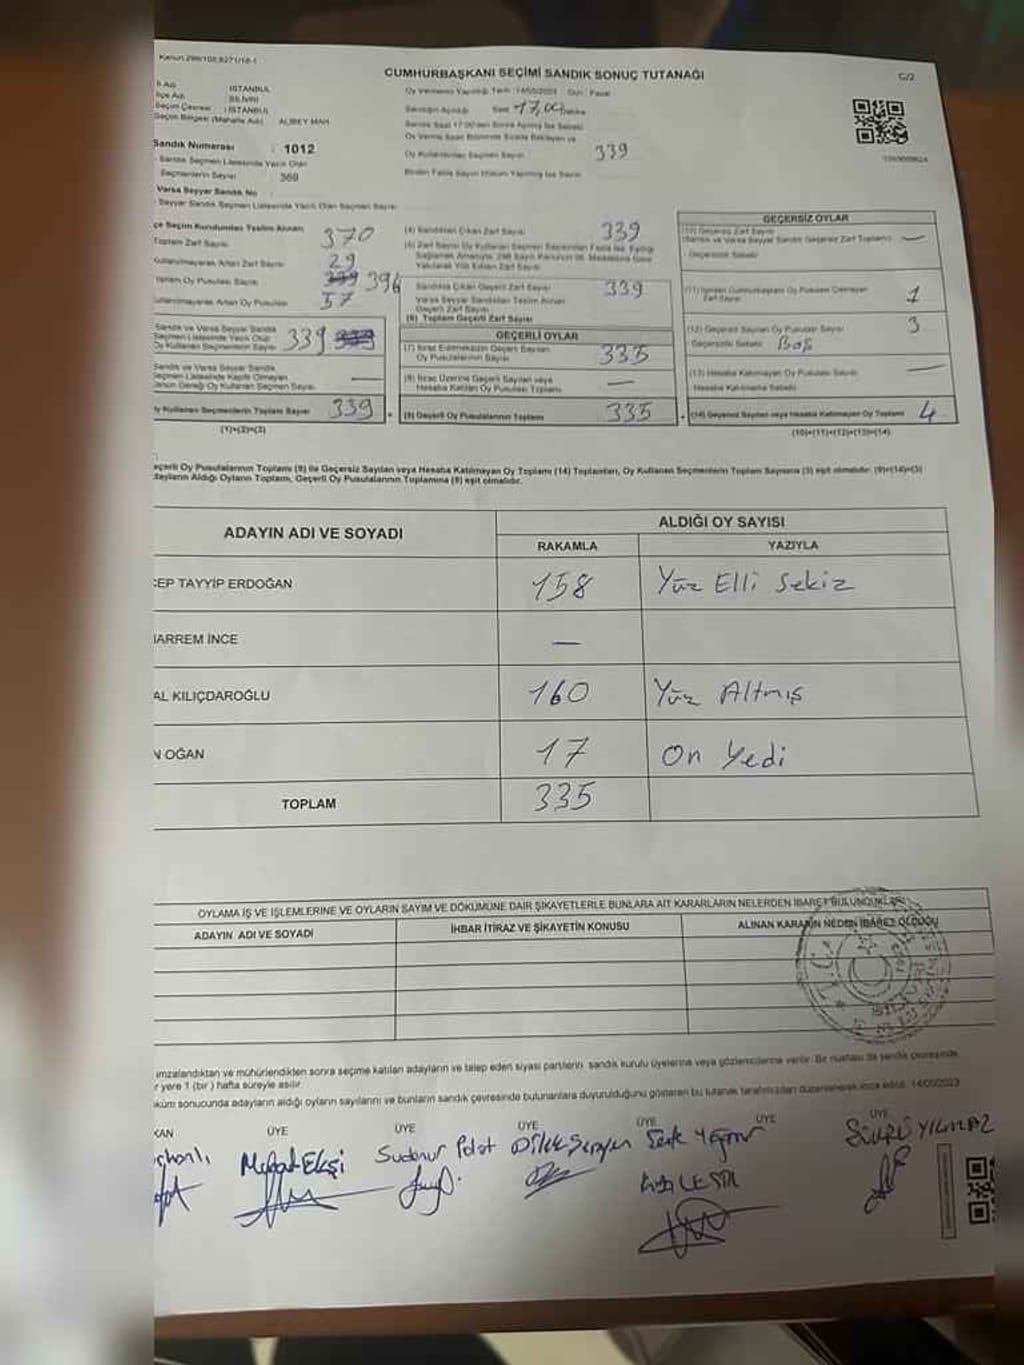 Kanun:298/105,6271/18-1
CUMHURBAŞKANI SEÇİMİ SANDIK SONUÇ TUTANAĞI
C/2
İl Adı : İSTANBUL
İlçe Adı : SİLİVRİ
Seçim Çevresi : İSTANBUL
Seçim Bölgesi (Mahalle Adı) : ALİBEY MAH.
Oy Vermenin Yapıldığı Tarih :14/05/2023 Gün : Pazar
Sandığın Açıldığı Saat 17,00 Dakika
Sandık Saat 17:00'den Sonra Açılmış İse Sebebi
Oy Verme Saati Bitiminde Sırada Bekleyen ve
Oy Kullandırılan Seçmen Sayısı 339
Sandık Numarası : 1012
- Sandık Seçmen Listesinde Yazılı Olan
Seçmenlerin Sayısı : 369
Varsa Seyyar Sandık No
- Seyyar Sandık Seçmen Listesinde Yazılı Olan Seçmen Sayısı
çe Seçim Kurulundan Teslim Alınan
Toplam Zarf Sayısı 370
Kullanılmayarak Artan Zarf Sayısı 29
Toplam Oy Pusulası Sayısı 396
Kullanılmayarak Artan Oy Pusulası 57
Sandık ve Varsa Seyyar Sandık
Seçmen Listesinde Yazılı Olup
Oy Kullanan Seçmenlerin Sayısı 339
Sandık ve Varsa Seyyar Sandık
Seçmen Listesinde Kayıtlı Olmayan
Kanun Gereği Oy Kullanan Seçmen Sayısı —
y Kullanan Seçmenlerin Toplam Sayısı 339
(1)+(2)=(3)
(4) Sandıktan Çıkan Zarf Sayısı 339
Sandıkta Çıkan Geçerli Zarf Sayısı 339
Varsa Seyyar Sandıktan Teslim Alınan
Geçerli Zarf Sayısı
(6) Toplam Geçerli Zarf Sayısı
GEÇERLİ OYLAR
(7) İtiraz Edilmeksizin Geçerli Sayılan
Oy Pusulalarının Sayısı 335
(8) İtiraz Üzerine Geçerli Sayılan veya
Hesaba Katılan Oy Pusulası Toplamı —
(9) Geçerli Oy Pusulalarının Toplamı 335
GEÇERSİZ OYLAR
(10) Geçersiz Zarf Sayısı
(Sandık ve Varsa Seyyar Sandık Geçersiz Zarf Toplamı) —
- Geçersizlik Sebebi
(11) İçinden Cumhurbaşkanı Oy Pusulası Çıkmayan
Zarf Sayısı 1
(12) Geçersiz Sayılan Oy Pusulası Sayısı 3
- Geçersizlik Sebebi Boş
(13) Hesaba Katılmayan Oy Pusulası Sayısı —
Hesaba Katılmama Sebebi
(14) Geçersiz Sayılan veya Hesaba Katılmayan Oy Toplamı 4
(10)+(11)+(12)+(13)=(14)
eçerli Oy Pusulalarının Toplamı (9) ile Geçersiz Sayılan veya Hesaba Katılmayan Oy Toplamı (14) Toplamları, Oy Kullanan Seçmenlerin Toplam Sayısına (3) eşit olmalıdır. (9)+(14)=(3)
dayların Aldığı Oyların Toplamı, Geçerli Oy Pusulalarının Toplamına (9) eşit olmalıdır.
ADAYIN ADI VE SOYADI
ALDIĞI OY SAYISI
RAKAMLA YAZIYLA
CEP TAYYİP ERDOĞAN 158 Yüz Elli Sekiz
HARREM İNCE —
AL KILIÇDAROĞLU 160 Yüz Altmış
N OĞAN 17 On Yedi
TOPLAM 335
OYLAMA İŞ VE İŞLEMLERİNE VE OYLARIN SAYIM VE DÖKÜMÜNE DAİR ŞİKAYETLERLE BUNLARA AİT KARARLARIN NELERDEN İBARET BULUNDUKLARI
ADAYIN ADI VE SOYADI İHBAR İTİRAZ VE ŞİKAYETİN KONUSU ALINAN KARARIN NEDEN İBARET OLDUĞU
T.C.
imzalandıktan ve mühürlendikten sonra seçime katılan adayların ve talep eden siyasi partilerin sandık kurulu üyelerine veya gözlemcilerine verilir. Bir nüshası da sandık çevresinde
r yere 1 (bir) hafta süreyle asılır.
küm sonucunda adayların aldığı oyların sayılarını ve bunların sandık çevresinde bulunanlara duyurulduğunu gösteren bu tutanak tarafımızdan düzenlenerek imza edildi. 14/05/2023
KAN ÜYE ÜYE ÜYE ÜYE ÜYE
Sudenur Polat
YILMAZ